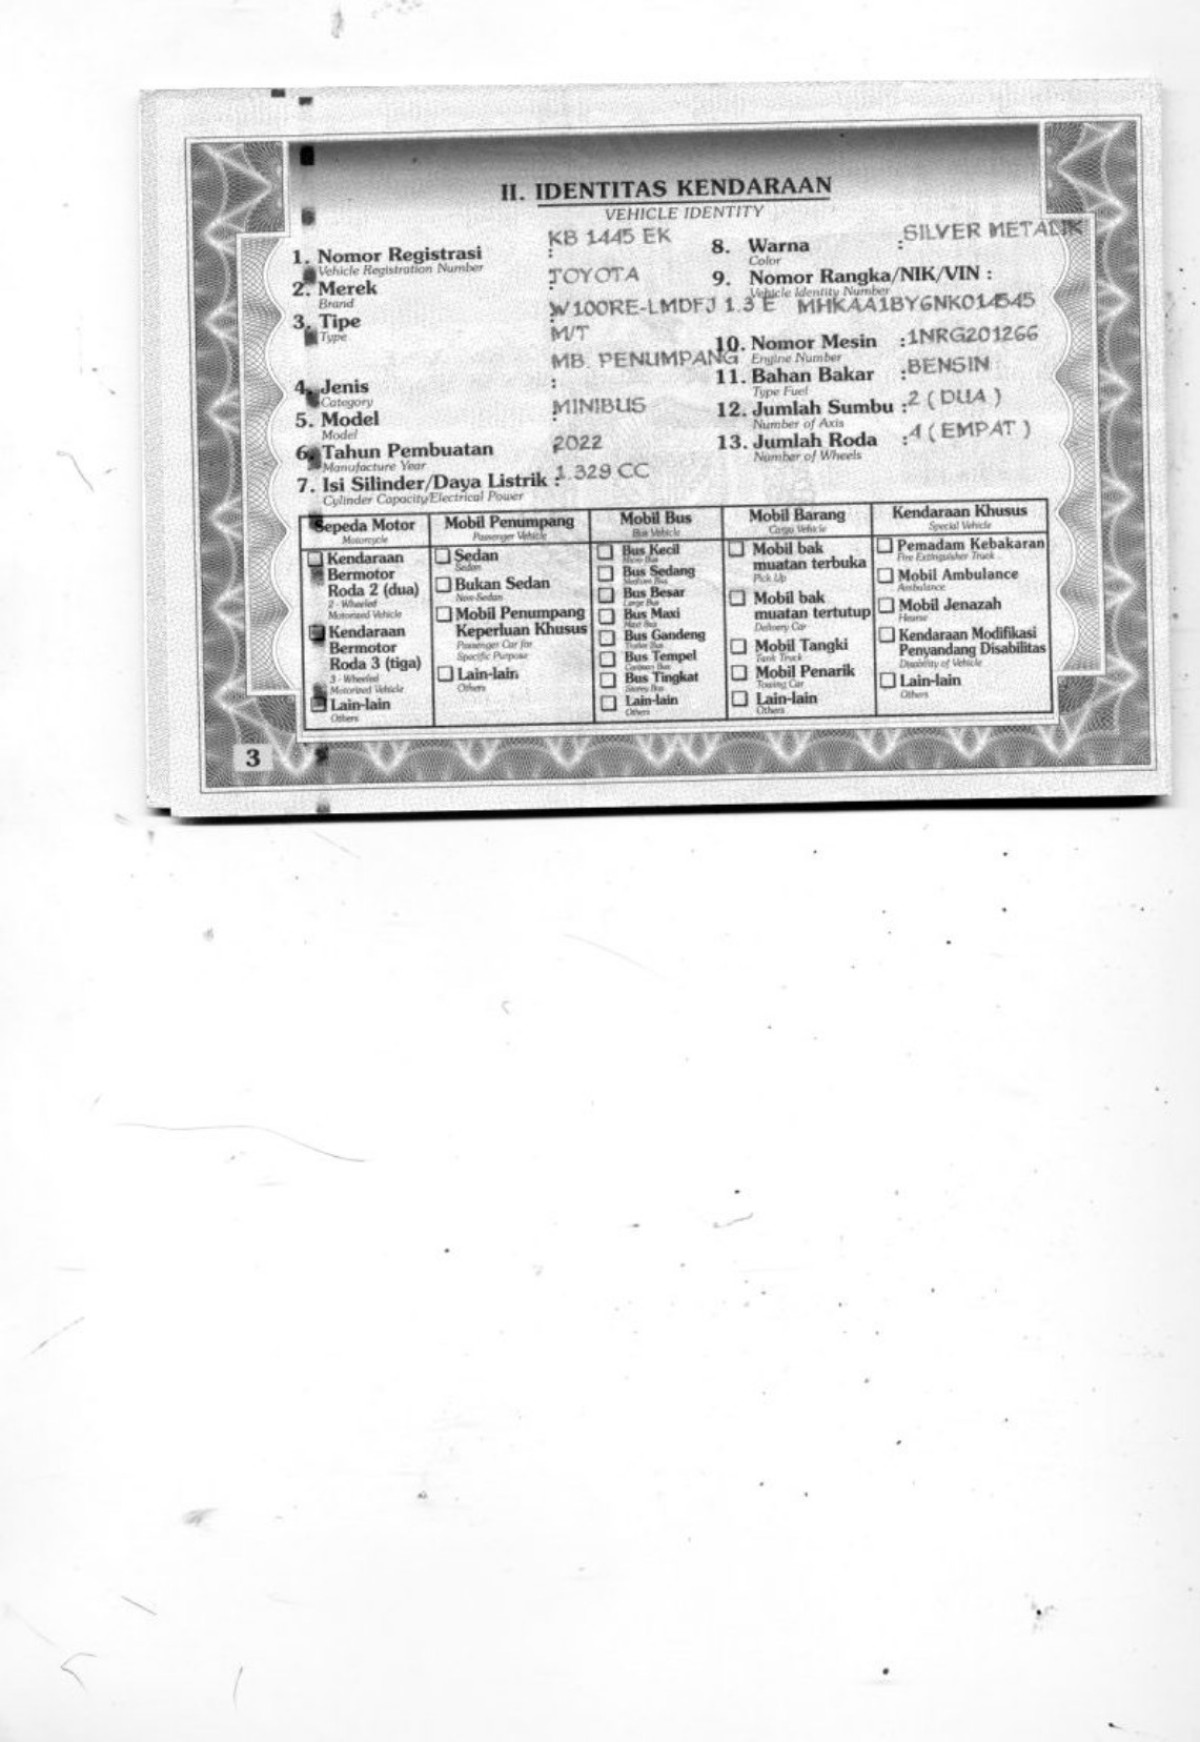 II. IDENTITAS KENDARAAN
VEHICLE IDENTITY
1. Nomor Registrasi : KB 1445 EK
Vehicle Registration Number
2. Merek : TOYOTA
Brand
3. Tipe : W100RE-LMDFJ 1.3 E
Type M/T
MB. PENUMPANG
4. Jenis :
Category
5. Model : MINIBUS
Model
6. Tahun Pembuatan : 2022
Manufacture Year
7. Isi Silinder/Daya Listrik : 1.329 CC
Cylinder Capacity/Electrical Power
8. Warna : SILVER METALIK
Color
9. Nomor Rangka/NIK/VIN :
Vehicle Identity Number
MHKAA1BY6NK014545
10. Nomor Mesin : 1NRG201266
Engine Number
11. Bahan Bakar : BENSIN
Type Fuel
12. Jumlah Sumbu : 2 ( DUA )
Number of Axis
13. Jumlah Roda : 4 ( EMPAT )
Number of Wheels
Sepeda Motor
Motorcycle
Kendaraan
Bermotor
Roda 2 (dua)
2 - Wheeled
Motorized Vehicle
Kendaraan
Bermotor
Roda 3 (tiga)
3 - Wheeled
Motorized Vehicle
Lain-lain
Others
Mobil Penumpang
Passenger Vehicle
Sedan
Sedan
Bukan Sedan
Non-Sedan
Mobil Penumpang
Keperluan Khusus
Passenger Car for
Specific Purpose
Lain-lain
Others
Mobil Bus
Bus Vehicle
Bus Kecil
Bus Sedang
Bus Besar
Large Bus
Bus Maxi
Maxi Bus
Bus Gandeng
Bus Tempel
Bus Tingkat
Lain-lain
Others
Mobil Barang
Cargo Vehicle
Mobil bak
muatan terbuka
Pick Up
Mobil bak
muatan tertutup
Delivery Car
Mobil Tangki
Tank Truck
Mobil Penarik
Towing Car
Lain-lain
Others
Kendaraan Khusus
Special Vehicle
Pemadam Kebakaran
Fire Extinguisher Truck
Mobil Ambulance
Ambulance
Mobil Jenazah
Hearse
Kendaraan Modifikasi
Penyandang Disabilitas
Disability of Vehicle
Lain-lain
Others
3